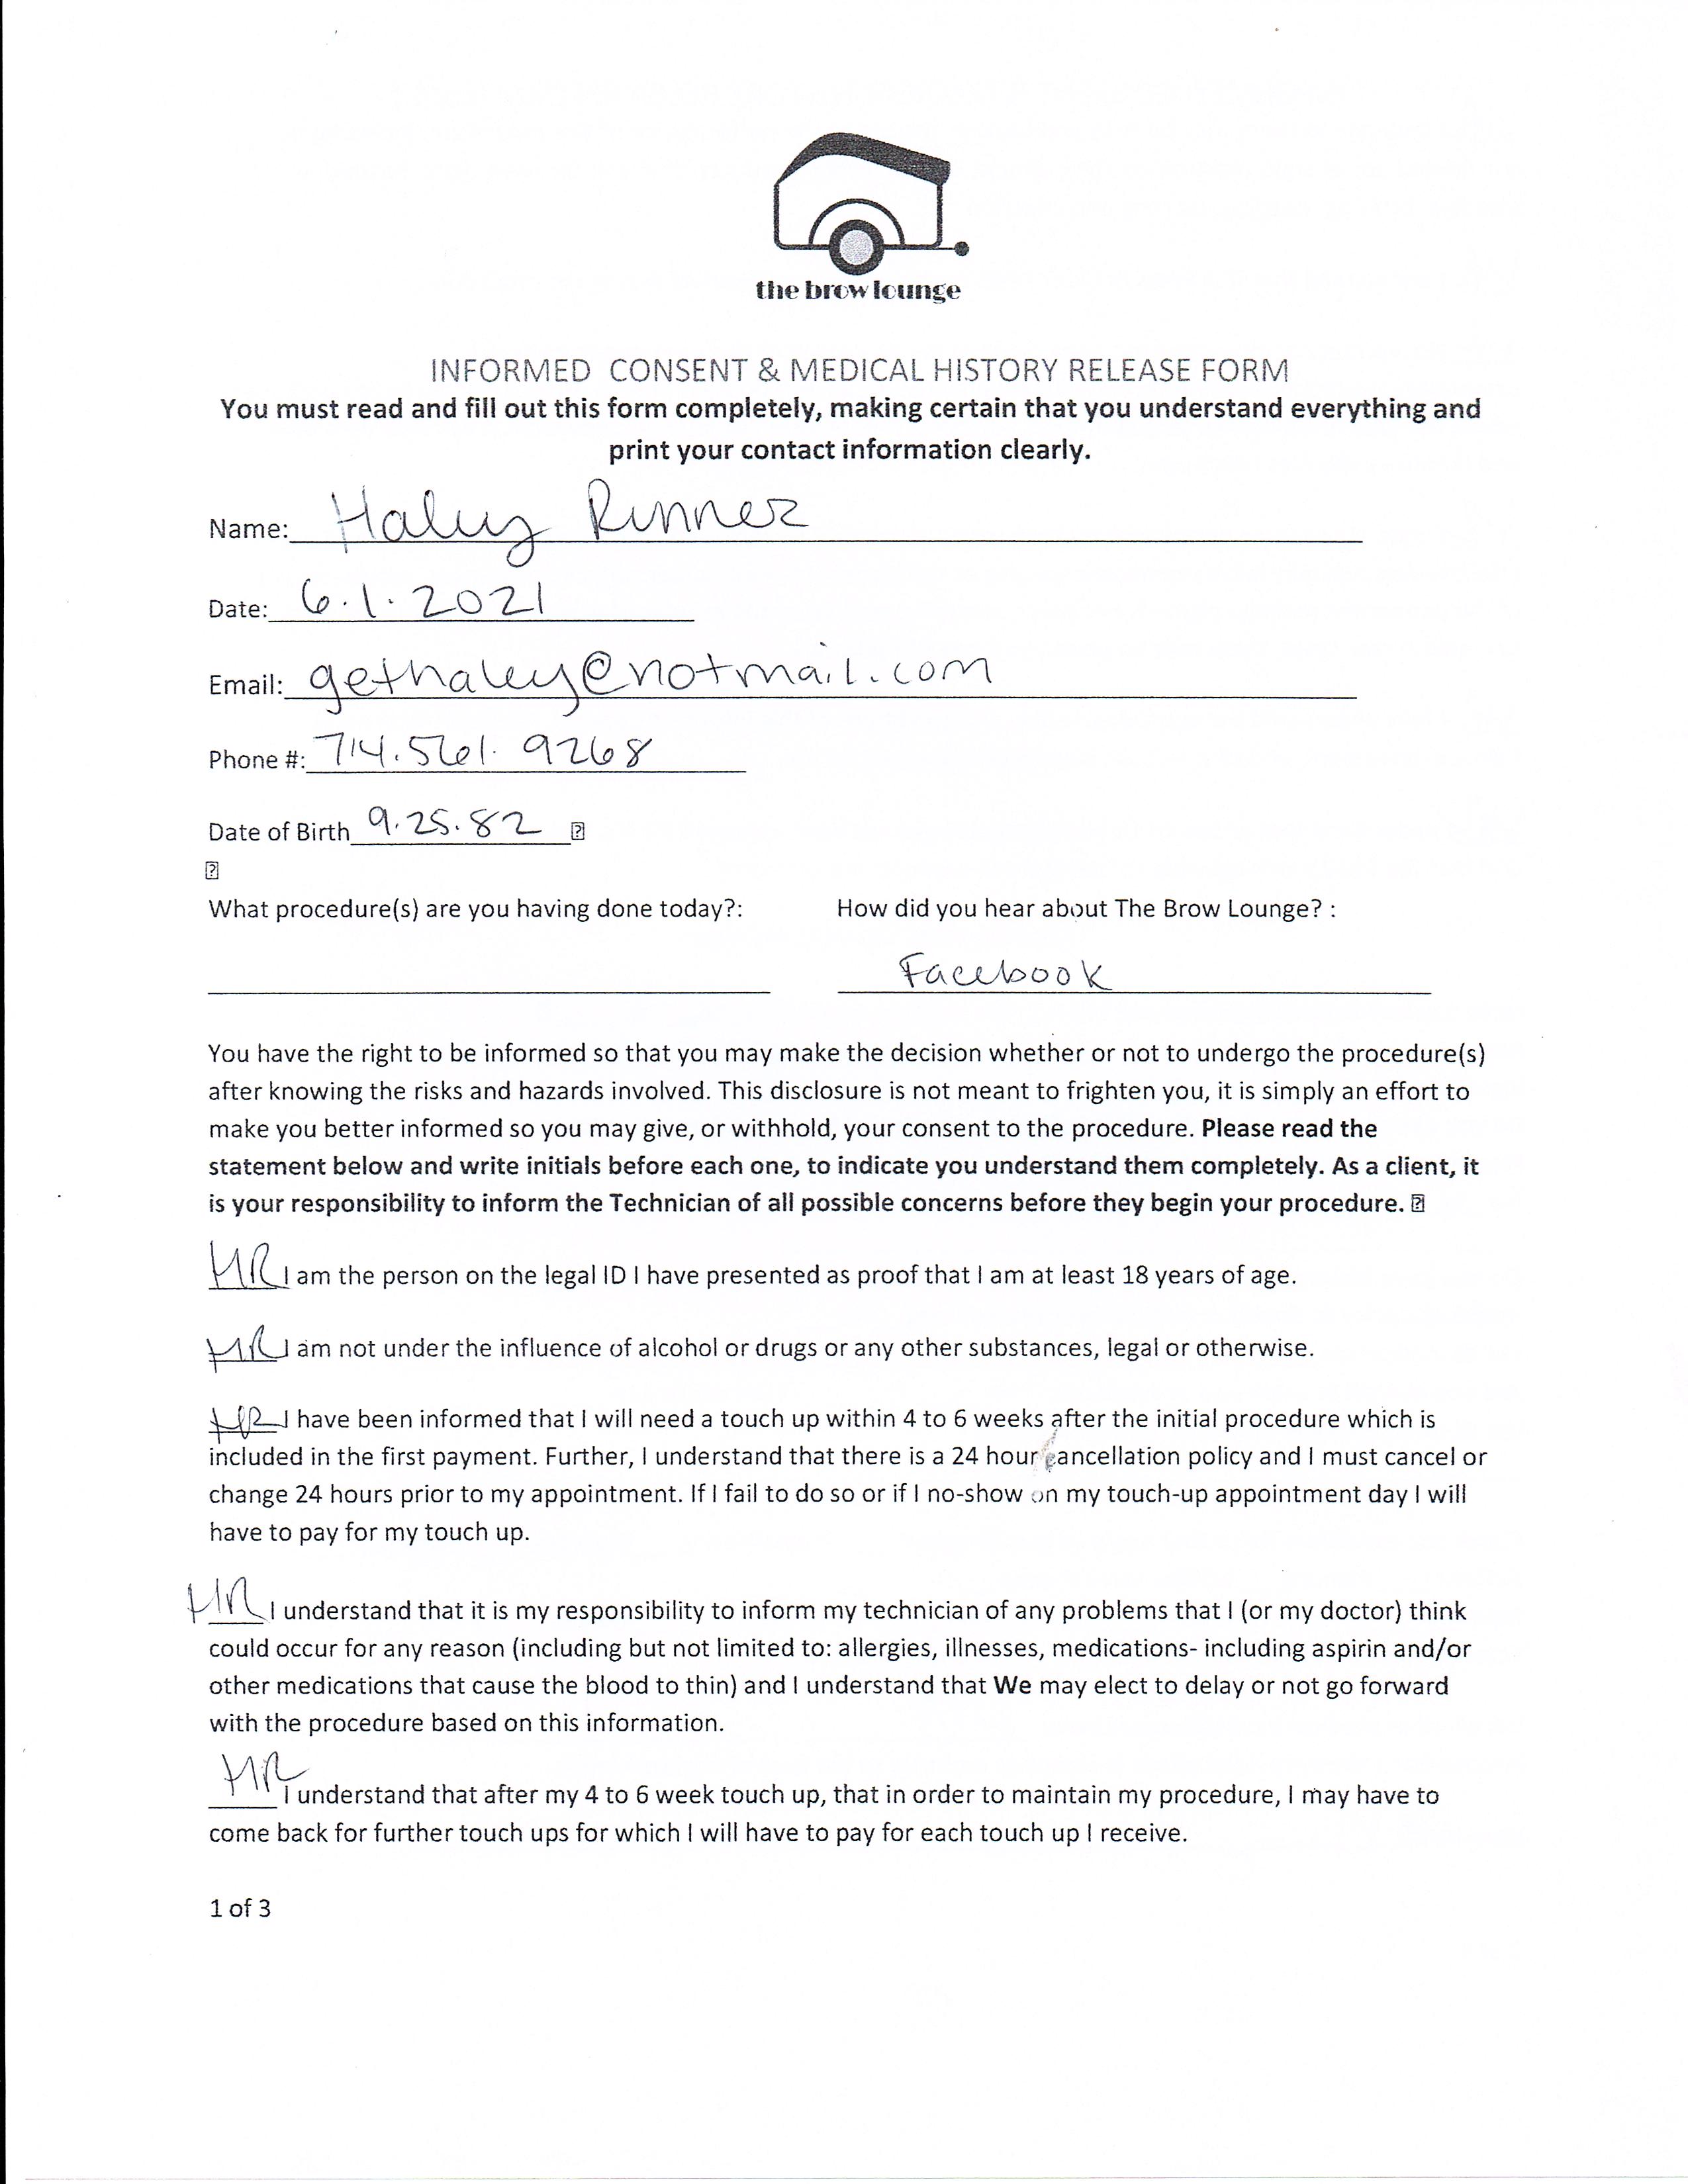 the brow lounge
INFORMED CONSENT & MEDICAL HISTORY RELEASE FORM
You must read and fill out this form completely, making certain that you understand everything and
print your contact information clearly.
Name: Haley Rinner
Date: 6.1.2021
Email: gethaley@hotmail.com
Phone #: 714.561.9268
Date of Birth 9.25.82
What procedure(s) are you having done today?: How did you hear about The Brow Lounge? :
Facebook
You have the right to be informed so that you may make the decision whether or not to undergo the procedure(s)
after knowing the risks and hazards involved. This disclosure is not meant to frighten you, it is simply an effort to
make you better informed so you may give, or withhold, your consent to the procedure. Please read the
statement below and write initials before each one, to indicate you understand them completely. As a client, it
is your responsibility to inform the Technician of all possible concerns before they begin your procedure.
HR I am the person on the legal ID I have presented as proof that I am at least 18 years of age.
HR I am not under the influence of alcohol or drugs or any other substances, legal or otherwise.
HR I have been informed that I will need a touch up within 4 to 6 weeks after the initial procedure which is
included in the first payment. Further, I understand that there is a 24 hour cancellation policy and I must cancel or
change 24 hours prior to my appointment. If I fail to do so or if I no-show on my touch-up appointment day I will
have to pay for my touch up.
HR I understand that it is my responsibility to inform my technician of any problems that I (or my doctor) think
could occur for any reason (including but not limited to: allergies, illnesses, medications- including aspirin and/or
other medications that cause the blood to thin) and I understand that We may elect to delay or not go forward
with the procedure based on this information.
HR I understand that after my 4 to 6 week touch up, that in order to maintain my procedure, I may have to
come back for further touch ups for which I will have to pay for each touch up I receive.
1 of 3